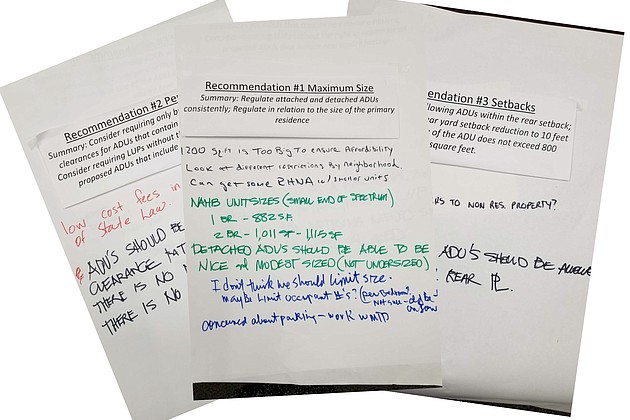 Recommendation #2 Pe
Summary: Consider requiring only b
clearances for ADUs that contain
Consider requiring LUPs without t
proposed ADUs that include
low cost fees in
of State Law.
ADU'S SHOULD BE
CLEARANCE
THERE IS NO
THERE IS NO
Recommendation #1 Maximum Size
Summary: Regulate attached and detached ADUs
consistently; Regulate in relation to the size of the primary
residence
200 Sq.ft is Too Big To ensure Affordibility
Look at different restrictions By neighborhood.
Can get some RHNA w/ smaller units
NAHB UNIT SIZES (SMALL END OF SPECTRUM)
1 BR - 882 SF
2 BR - 1,011 SF - 1,115 SF
DETACHED ADU'S SHOULD BE ABLE TO BE
NICE and MODEST SIZED (NOT UNDERSIZED)
I don't think we should limit size.
maybe limit occupant #'s? (per Bedroom?
Not sure -
concerned about parking - work w MTD
endation #3 Setbacks
llowing ADUs within the rear setback;
ar yard setback reduction to 10 feet
of the ADU does not exceed 800
square feet.
KS TO NON RES. PROPERTY?
ADU'S SHOULD BE ALLOWE
REAR PL.